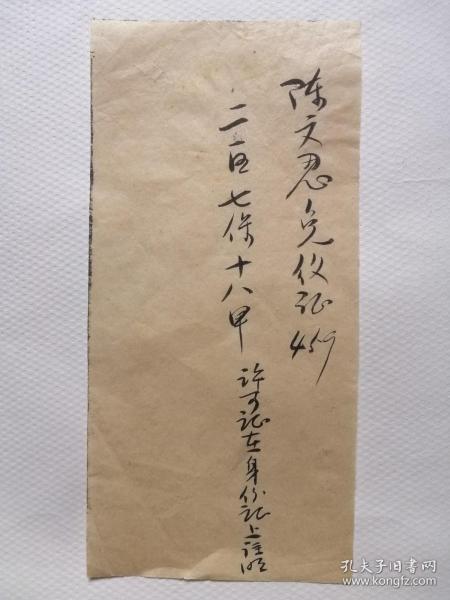 陈文忍免役证459
二区七保十八甲
许可证在身份证上注明
孔夫子旧书网
www.kongfz.com